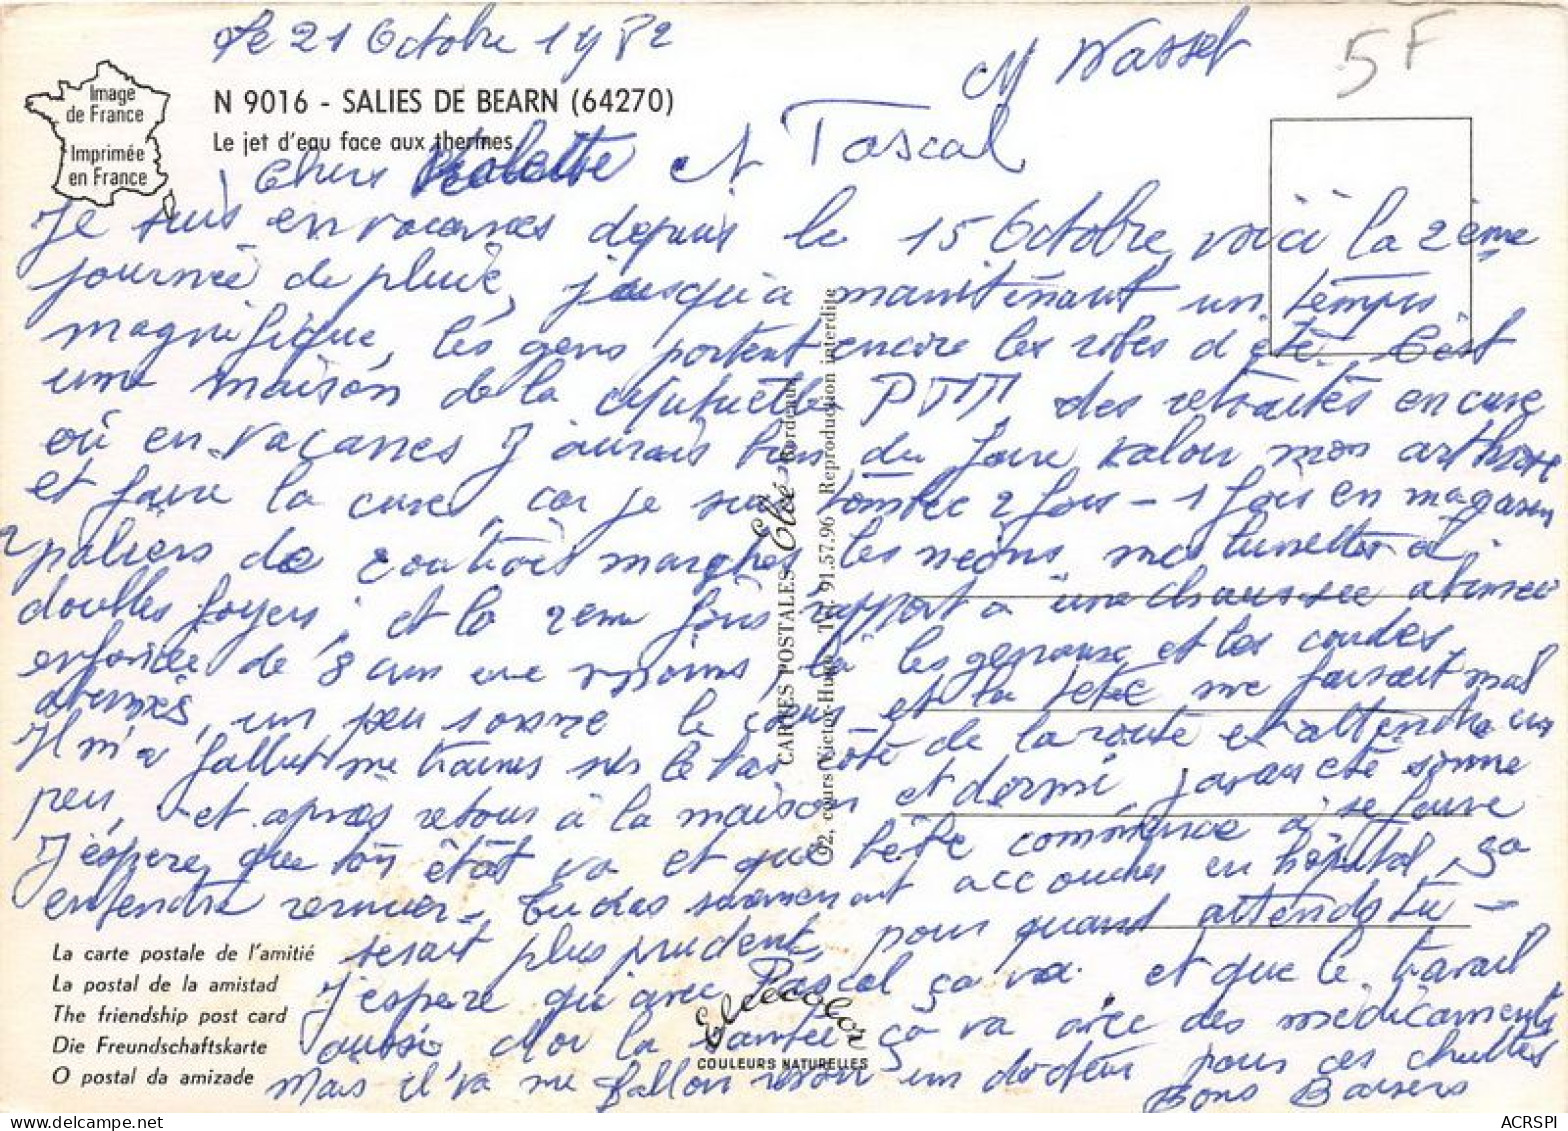 Le 21 Octobre 1982
M Wasset
5F
Image
de France
Imprimée
en France
N 9016 - SALIES DE BEARN (64270)
Le jet d'eau face aux thermes.
Chers et Pascal
Je suis en vacances depuis le 15 Octobre, voici la 2ème
journée de pluie, jusqu'à maintenant un temps
magnifique, les gens portent encore les robes d'été. C'est
une maison de la Mutuelle PTT, des retraités en cure
où en vacances J'aurais bien du faire valoir mon arthrose
et faire la cure, car je suis tombée 2 fois - 1 fois en magasin
2 paliers de marches les néons mes lunettes à
doubles foyers, et la 2eme fois rapport à une chaussée abimée
enfoncée de 8 cm au moins, là les genoux et les coudes
abimés, un peu sonnée le et la tête me faisait mal
Il m'a fallut me trainer sur le bas côté de la route et attendre un
peu, et après retour à la maison et dormi j'avais été sonnée
J'espère que ton état va et que bébé commence à se faire
entendre remuer. Tu dois surement accoucher en hôpital, ça
serait plus prudent, pour quand attends tu -
J'espère qu'avec Pascal ça va. et que le travail
aussi, Moi la santée ça va avec des médicaments
Mais il va me falloir revoir un docteur pour ces chuttes
Bons Baisers
La carte postale de l'amitié
La postal de la amistad
The friendship post card
Die Freundschaftskarte
O postal da amizade
CARTES POSTALES Elcé Bordeaux
cours Victor-Hugo Tél. 91.57.96 Reproduction interdite
Elcécolor
COULEURS NATURELLES
ACRSPI